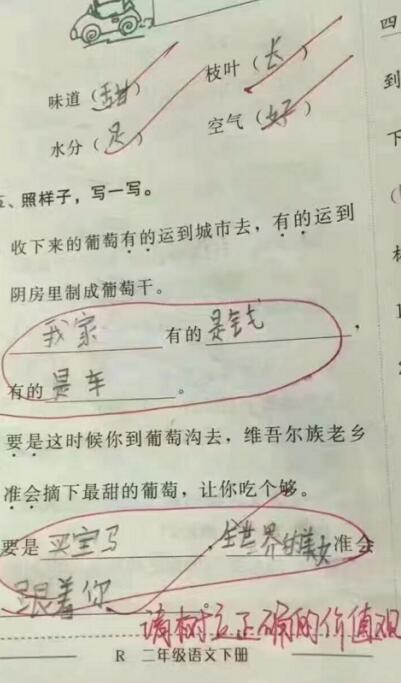 四
味道（甜）
枝叶（长）
水分（足）
空气（好）
、照样子，写一写。
收下来的葡萄有的运到城市去，有的运到
阴房里制成葡萄干。
我家有的是钱，
有的是车。
要是这时候你到葡萄沟去，维吾尔族老乡
准会摘下最甜的葡萄，让你吃个够。
要是买宝马，全世界的美女准会
跟着你
请树立正确的价值观
R 二年级语文下册
到
下